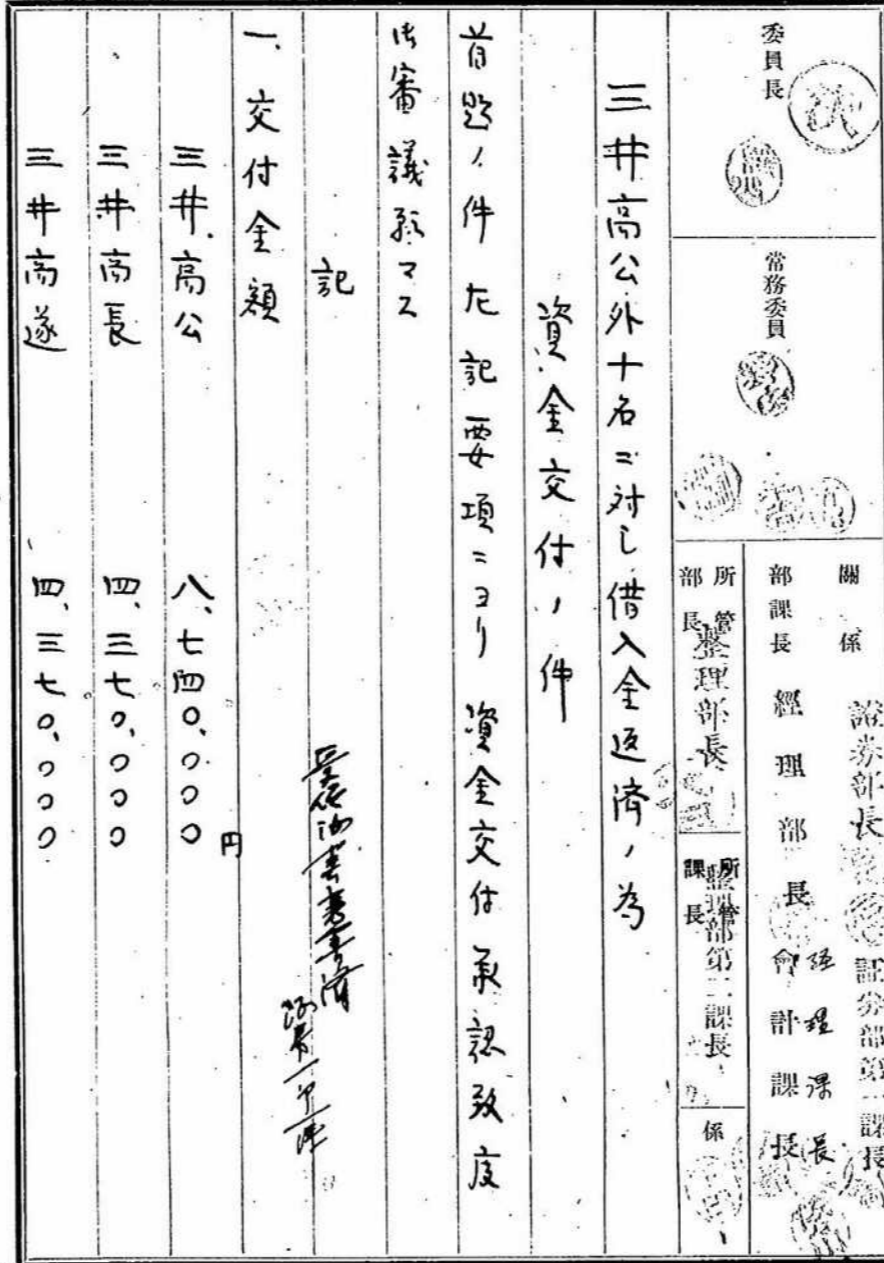 委員長
常務委員
關係
部課長
經理部長
會計課長
経理課長
證券部長
証券部第一課長
所管
部長
整理部長
所管
課長
整理部第二課長
係
三井高公外十名ニ対し借入金返済ノ為
資金交付ノ件
首題ノ件左記要項ニヨリ資金交付承認致度
御審議願マス
記
一、交付金額
三井高公 八、七四〇、〇〇〇円
三井高長 四、三七〇、〇〇〇
三井高遂 四、三七〇、〇〇〇